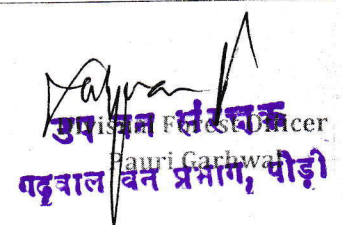 उप वन संरक्षक
Division Forest Officer
Pauri Garhwal
गढ़वाल वन प्रभाग, पौड़ी